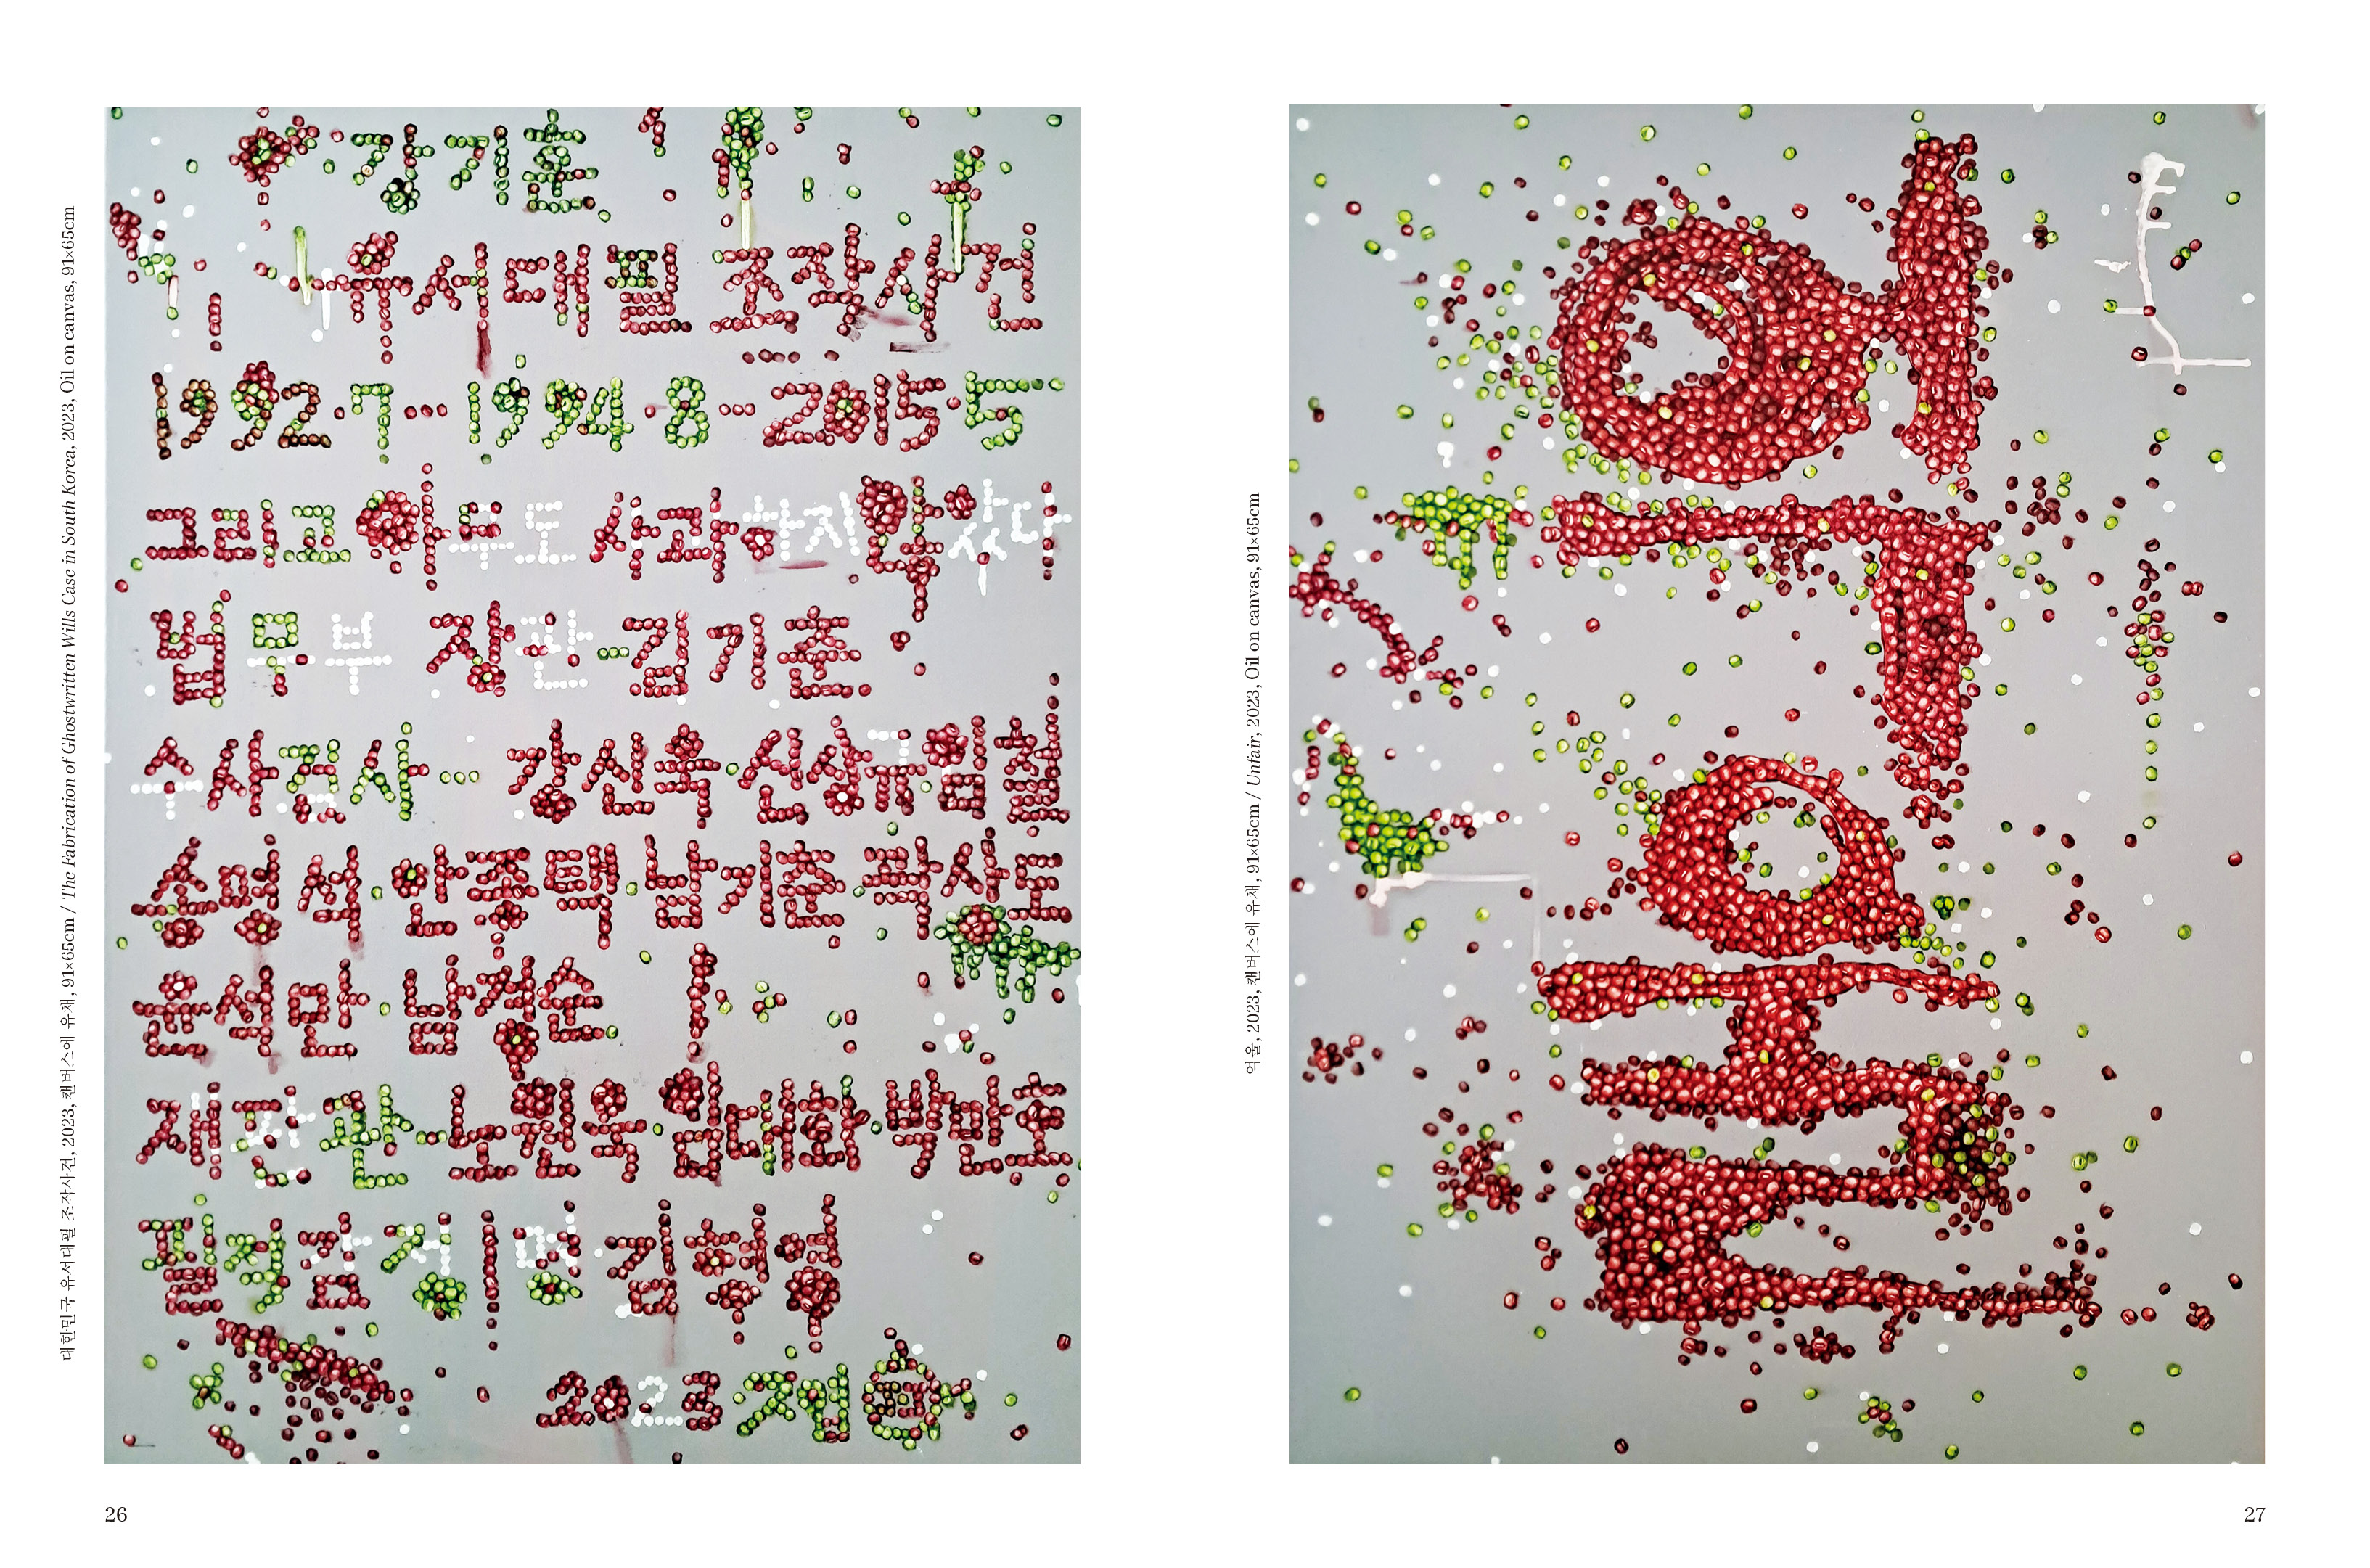 대한민국 유서대필 조작사건, 2023, 캔버스에 유채, 91×65cm / The Fabrication of Ghostwritten Wills Case in South Korea, 2023, Oil on canvas, 91×65cm
강기훈
유서대필 조작사건
1992·7···1994·8···2015·5··
그리고 아무도 사과하지 않았다
법무부 장관··김기춘
수사검사··· 강신욱·신상규 임철
송명석·안종택·남기춘·곽상도
윤석만·
재판관··노원욱·임대화·박만호
필적감정 ·김형영
2023
26
억울, 2023, 캔버스에 유채, 91×65cm / Unfair, 2023, Oil on canvas, 91×65cm
억
울
27